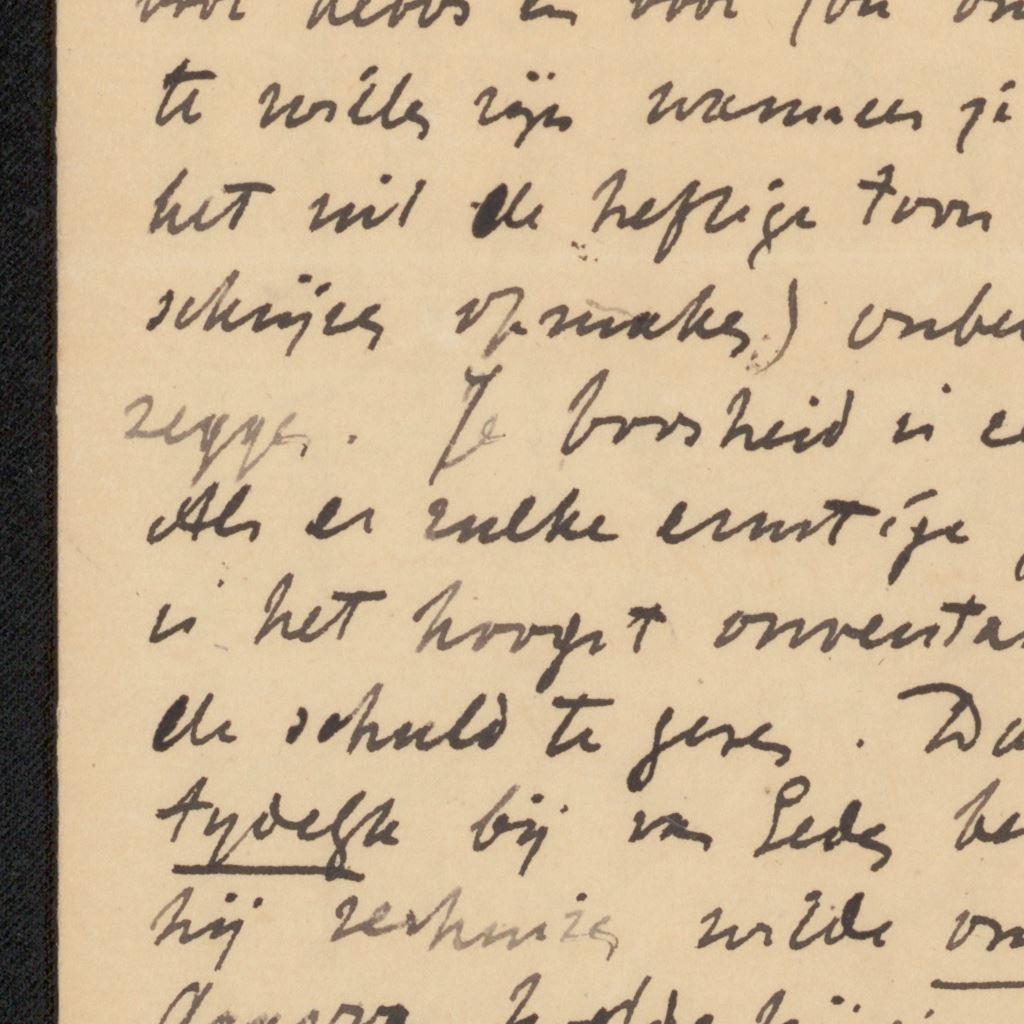 te willen zijn wanneer je
het uit de heftige toon
schrijven opmaken) onbe
zeggen. Je boosheid is ee
Als er zulke ernstige
is het hoogst onverta
de schuld te geven. Da
tydelijk bij van Leden be
hij verhuizen wilde om